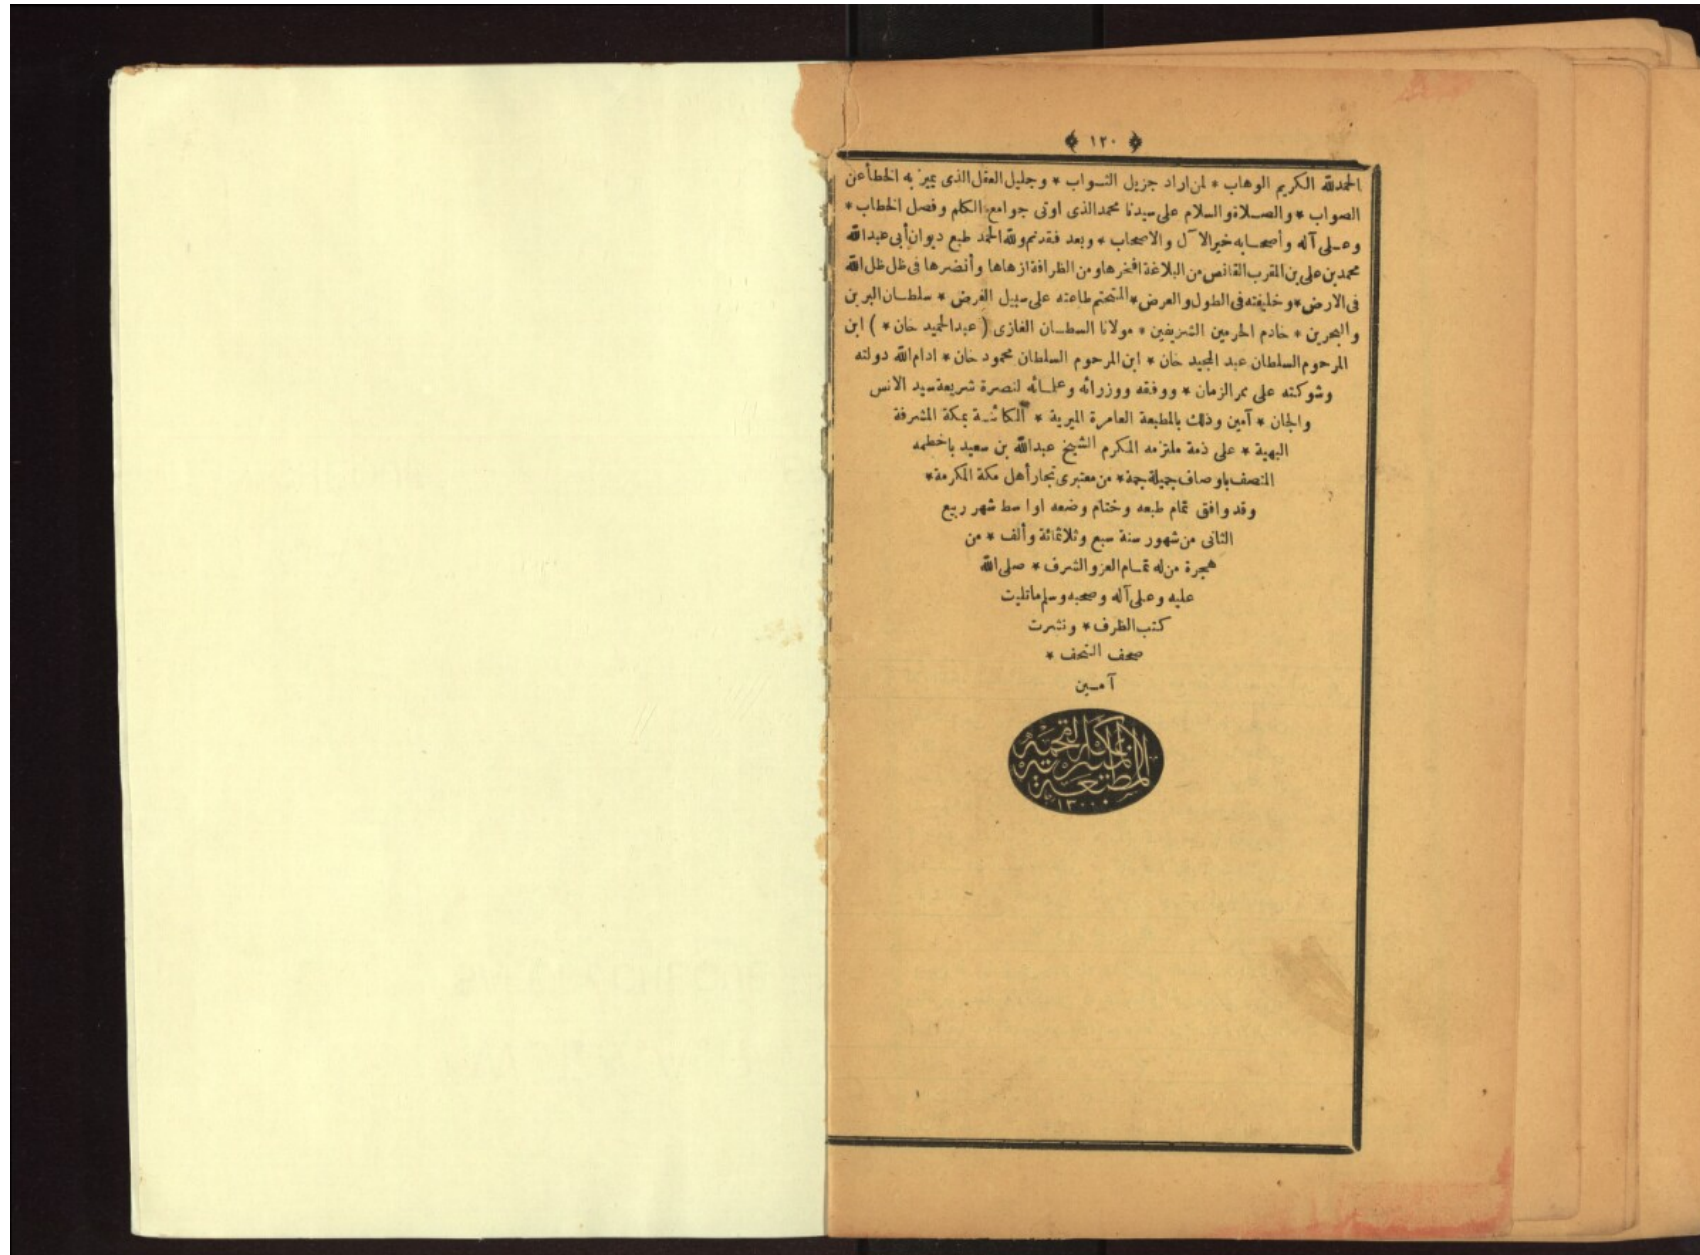 ١٢٠
الحمدلله الكريم الوهاب * لمن اراد جزيل الثـواب * وجليل العقل الذى يميز به الخطأ عن
الصواب * والصـلاة والسلام على سيدنا محمد الذى اوتى جوامع الكلم وفصل الخطاب *
وعـلى آله وأصحـابه خير الآل والاصحاب * وبعد فقد تم ولله الحمد طبع ديوان أبى عبدالله
محمد بن على بن المقرب القانص من البلاغة افخرها ومن الظرافة ازهاها وأنضرها فى ظل ظل الله
فى الارض * وخليفته فى الطول والعرض * المتحتم طاعته على سبيل الفرض * سلطـان البرين
والبحرين * خادم الحرمين الشريفين * مولانا السطـان الغازى ( عبدالحميد خان * ) ابن
المرحوم السلطان عبد المجيد خان * ابن المرحوم السلطان محمود خان * ادام الله دولته
وشوكته على ممر الزمان * ووفقه ووزرائه وعلمـائه لنصرة شريعة سيد الانس
والجان * آمين وذلك بالمطبعة العامرة الميرية * الكائنـة بمكة المشرفة
البهية * على ذمة ملتزمه المكرم الشيخ عبدالله بن سعيد باخطمه
المتصف باوصاف جميلة جمة * من معتبرى تجار أهل مكة المكرمة *
وقد وافق تمام طبعه وختام وضعه اواسط شهر ربيع
الثانى من شهور سنة سبع وثلاثمائة وألف * من
هجرة من له تمـام العز والشرف * صلى الله
عليه وعلى آله وصحبه وسلم ما تليت
كتب الظرف * ونشرت
صحف التحف *
آمـين
المطبعة الميرية
١٣٠٠